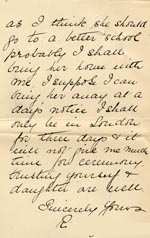 as I think she should
go to a better school
probably I shall
bring her home with
me. I suppose I can
bring her away at a
days notice I shall
only be in London
for three days & it
will not give me much
time for ceremony.
Trusting yourself &
daughter are well.
Sincerely Yours
R